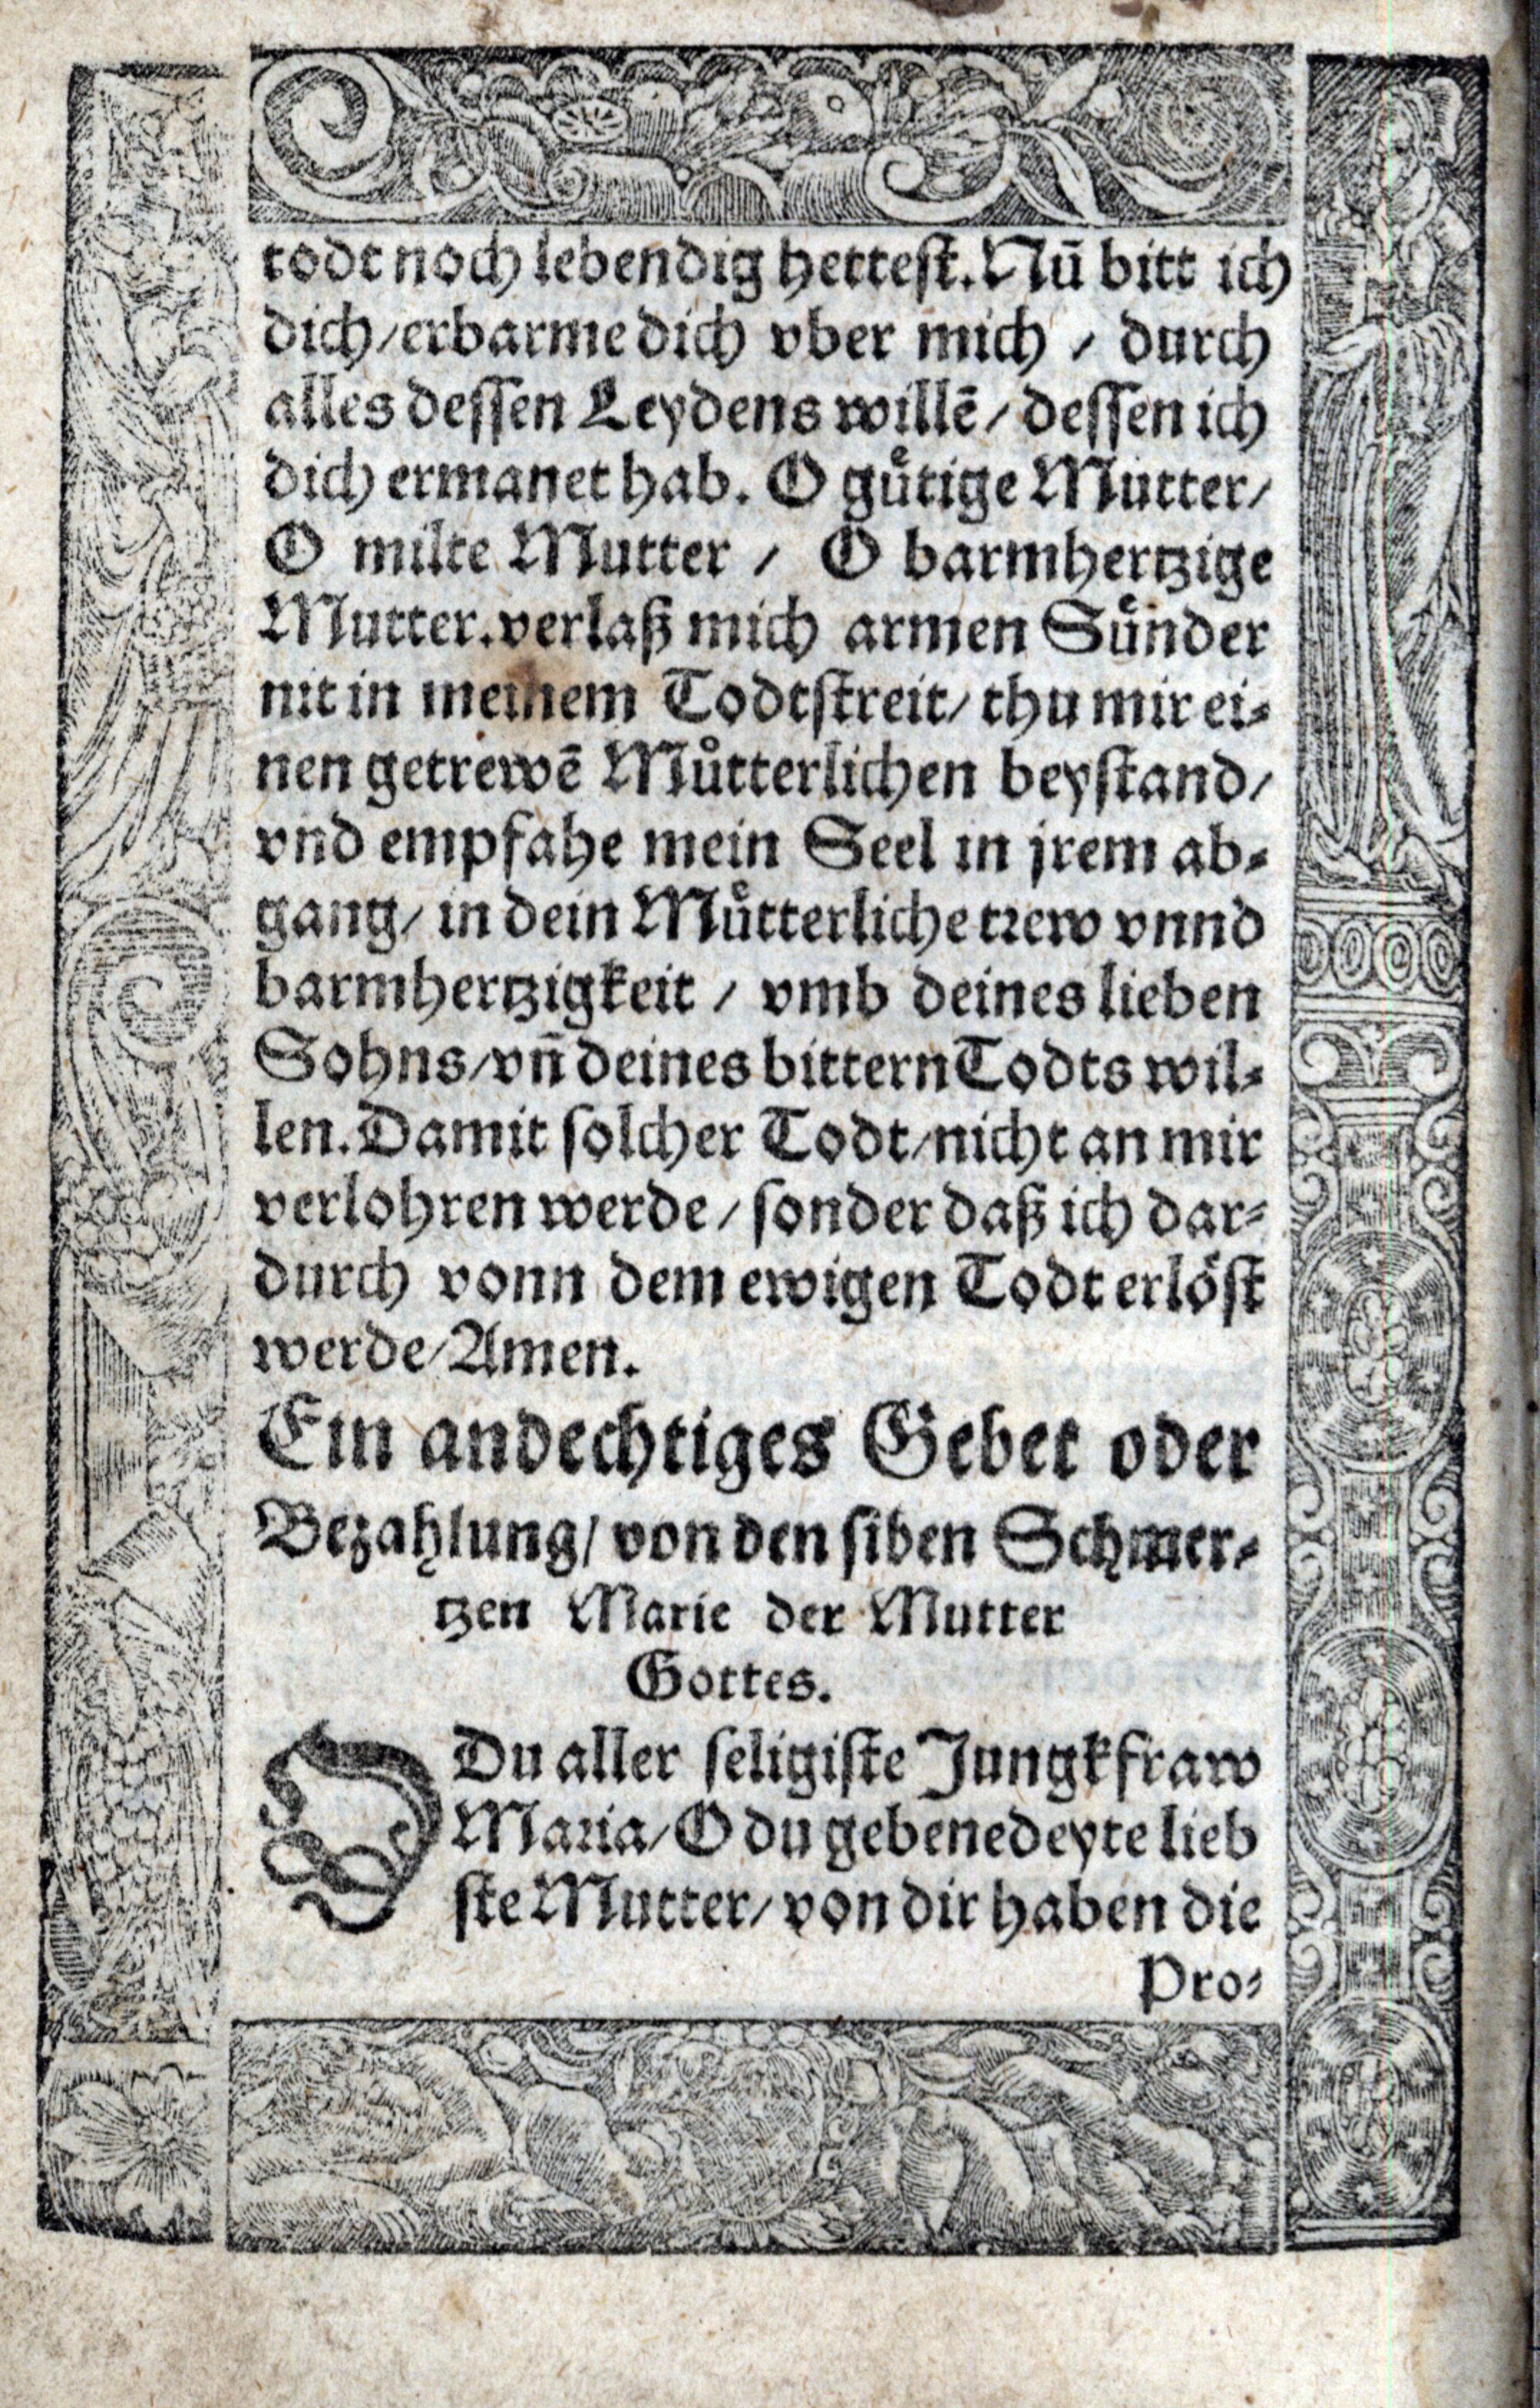 todt noch lebendig hettest. Nū bitt ich
dich/erbarme dich vber mich / durch
alles dessen Leydens willē/ dessen ich
dich ermanet hab. O guͤtige Mutter/
O milte Mutter / O barmhertzige
Mutter. verlaß mich armen Suͤnder
nit in meinem Todtstreit/ thu mir ei-
nen getrewē Muͤtterlichen beystand/
vnd empfahe mein Seel in jrem ab-
gang/ in dein Muͤtterliche trew vnnd
barmhertzigkeit / vmb deines lieben
Sohns/vn̄ deines bittern Todts wil-
len. Damit solcher Todt/nicht an mir
verlohren werde / sonder daß ich dar-
durch vonn dem ewigen Todt erlöst
werde/Amen.
Ein andechtiges Gebet oder
Bezahlung/ von den siben Schmer-
tzen Marie der Mutter
Gottes.
O Du aller seligiste Jungkfraw
Maria/O du gebenedeyte lieb
ste Mutter/ von dir haben die
Pro-